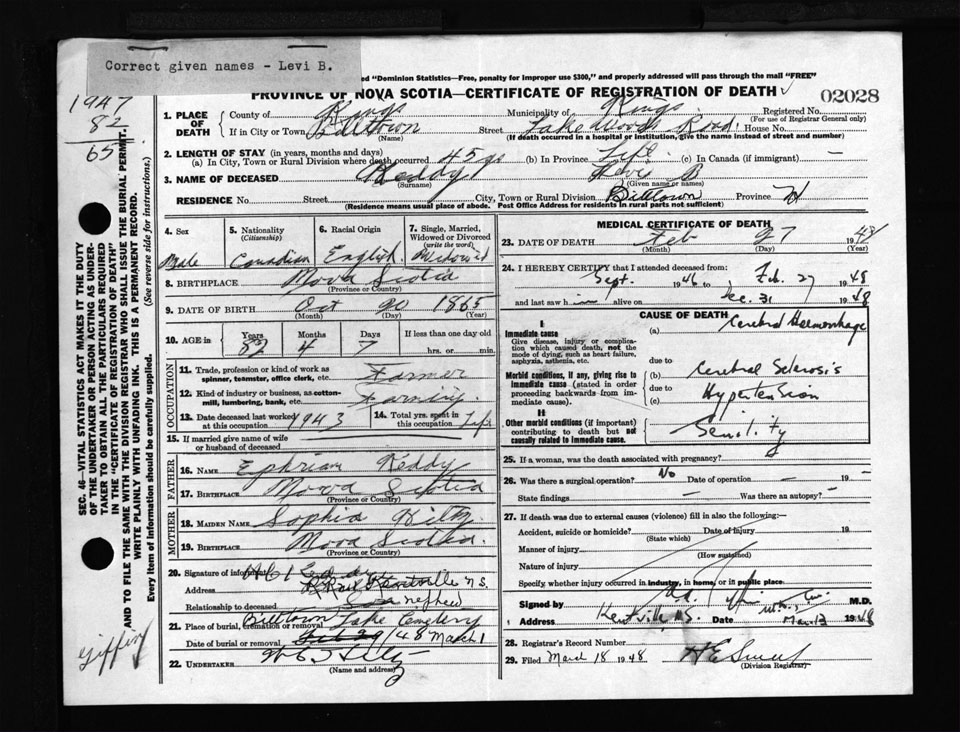 Correct given names - Levi B.
ed "Dominion Statistics—Free, penalty for improper use $300," and properly addressed will pass through the mail "FREE"
PROVINCE OF NOVA SCOTIA—CERTIFICATE OF REGISTRATION OF DEATH
02028
1947
82
65
1. PLACE OF DEATH
County of Kings Municipality of Kings Registered No.
(For use of Registrar General only)
If in City or Town Billtown Street Lakewood Road House No.
(Name) (If death occurred in a hospital or institution, give the name instead of street and number)
2. LENGTH OF STAY (in years, months and days)
(a) In City, Town or Rural Division where death occurred 45 yr (b) In Province Life (c) In Canada (if immigrant) —
3. NAME OF DECEASED Keddy B
(Surname) (Given name or names)
RESIDENCE No. Street City, Town or Rural Division Billtown Province
(Residence means usual place of abode. Post Office Address for residents in rural parts not sufficient)
4. Sex Male
5. Nationality (Citizenship) Canadian
6. Racial Origin English
7. Single, Married, Widowed or Divorced (write the word) Widowed
8. BIRTHPLACE Nova Scotia
(Province or Country)
9. DATE OF BIRTH Oct 20 1865
(Month) (Day) (Year)
10. AGE in Years 82 Months 4 Days 7 If less than one day old hrs. or min.
OCCUPATION
11. Trade, profession or kind of work as spinner, teamster, office clerk, etc. Farmer
12. Kind of industry or business, as cotton-mill, lumbering, bank, etc. Farming
13. Date deceased last worked at this occupation 1943
14. Total yrs. spent in this occupation Life
15. If married give name of wife or husband of deceased
FATHER
16. NAME Ephriam Keddy
17. BIRTHPLACE Nova Scotia
(Province or Country)
MOTHER
18. MAIDEN NAME Sophia Hiltz
19. BIRTHPLACE Nova Scotia.
(Province or Country)
20. Signature of informant
Address Kentville N.S.
Relationship to deceased nephew
21. Place of burial, cremation or removal Billtown Lake Cemetery
Date of burial or removal Feb 29 1948 March 1
22. UNDERTAKER
(Name and address)
MEDICAL CERTIFICATE OF DEATH
23. DATE OF DEATH Feb 27 1948
(Month) (Day) (Year)
24. I HEREBY CERTIFY that I attended deceased from:
Sept. 1946 to Feb. 27 1948
and last saw him alive on Dec. 31 1948
CAUSE OF DEATH
I
Immediate cause
Give disease, injury or complication which caused death, not the mode of dying, such as heart failure, asphyxia, asthenia, etc.
(a) Cerebral Hemorrhage
due to
Morbid conditions, if any, giving rise to immediate cause (stated in order proceeding backwards from immediate cause).
(b) Cerebral Sclerosis
due to
(c) Hypertension
II
Other morbid conditions (if important) contributing to death but not causally related to immediate cause.
Senility
25. If a woman, was the death associated with pregnancy?
26. Was there a surgical operation? No Date of operation — 19 —
State findings — Was there an autopsy? —
27. If death was due to external causes (violence) fill in also the following:—
Accident, suicide or homicide? Date of injury 19
(State which)
Manner of injury
(How sustained)
Nature of injury
Specify, whether injury occurred in industry, in home, or in public place
Signed by M.D.
Address Kentville N.S. Date Mar. 13 1948
28. Registrar's Record Number
29. Filed March 18 1948
(Division Registrar)
SEC. 46—VITAL STATISTICS ACT MAKES IT THE DUTY OF THE UNDERTAKER OR PERSON ACTING AS UNDERTAKER TO OBTAIN ALL THE PARTICULARS REQUIRED IN THE "CERTIFICATE OF REGISTRATION OF DEATH" AND TO FILE THE SAME WITH THE DIVISION REGISTRAR WHO SHALL ISSUE THE BURIAL PERMIT.
(See reverse side for instructions.)
WRITE PLAINLY WITH UNFADING INK. THIS IS A PERMANENT RECORD.
Every item of information should be carefully supplied.
Giffin